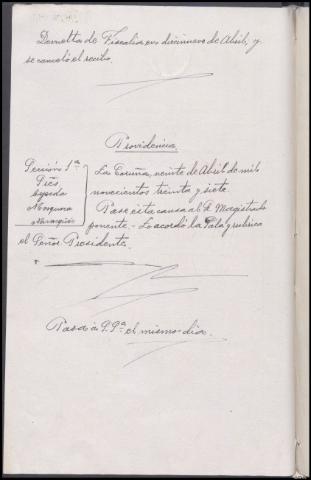 Devuelta de Fiscalia en diecinueve de Abril, y
se canceló el recibo.
Providencia
Sección 1ª
La Coruña, veinte de Abril de mil
novecientos treinta y siete.
Pase esta causa al Sr. Magistrado
ponente. - Lo acordó la Sala y rubrica
el Señor Presidente.
Pasa á el mismo dia.